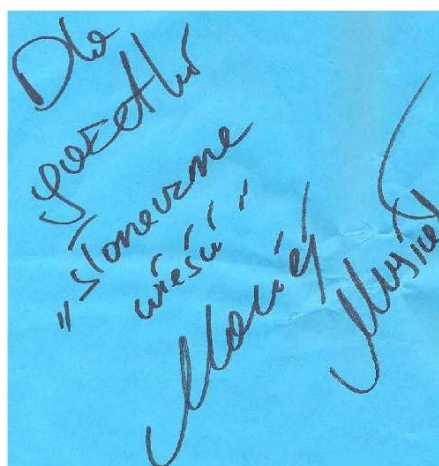 Dla
gazetki
"Słoneczne
wieści"
Maciej
Musiał